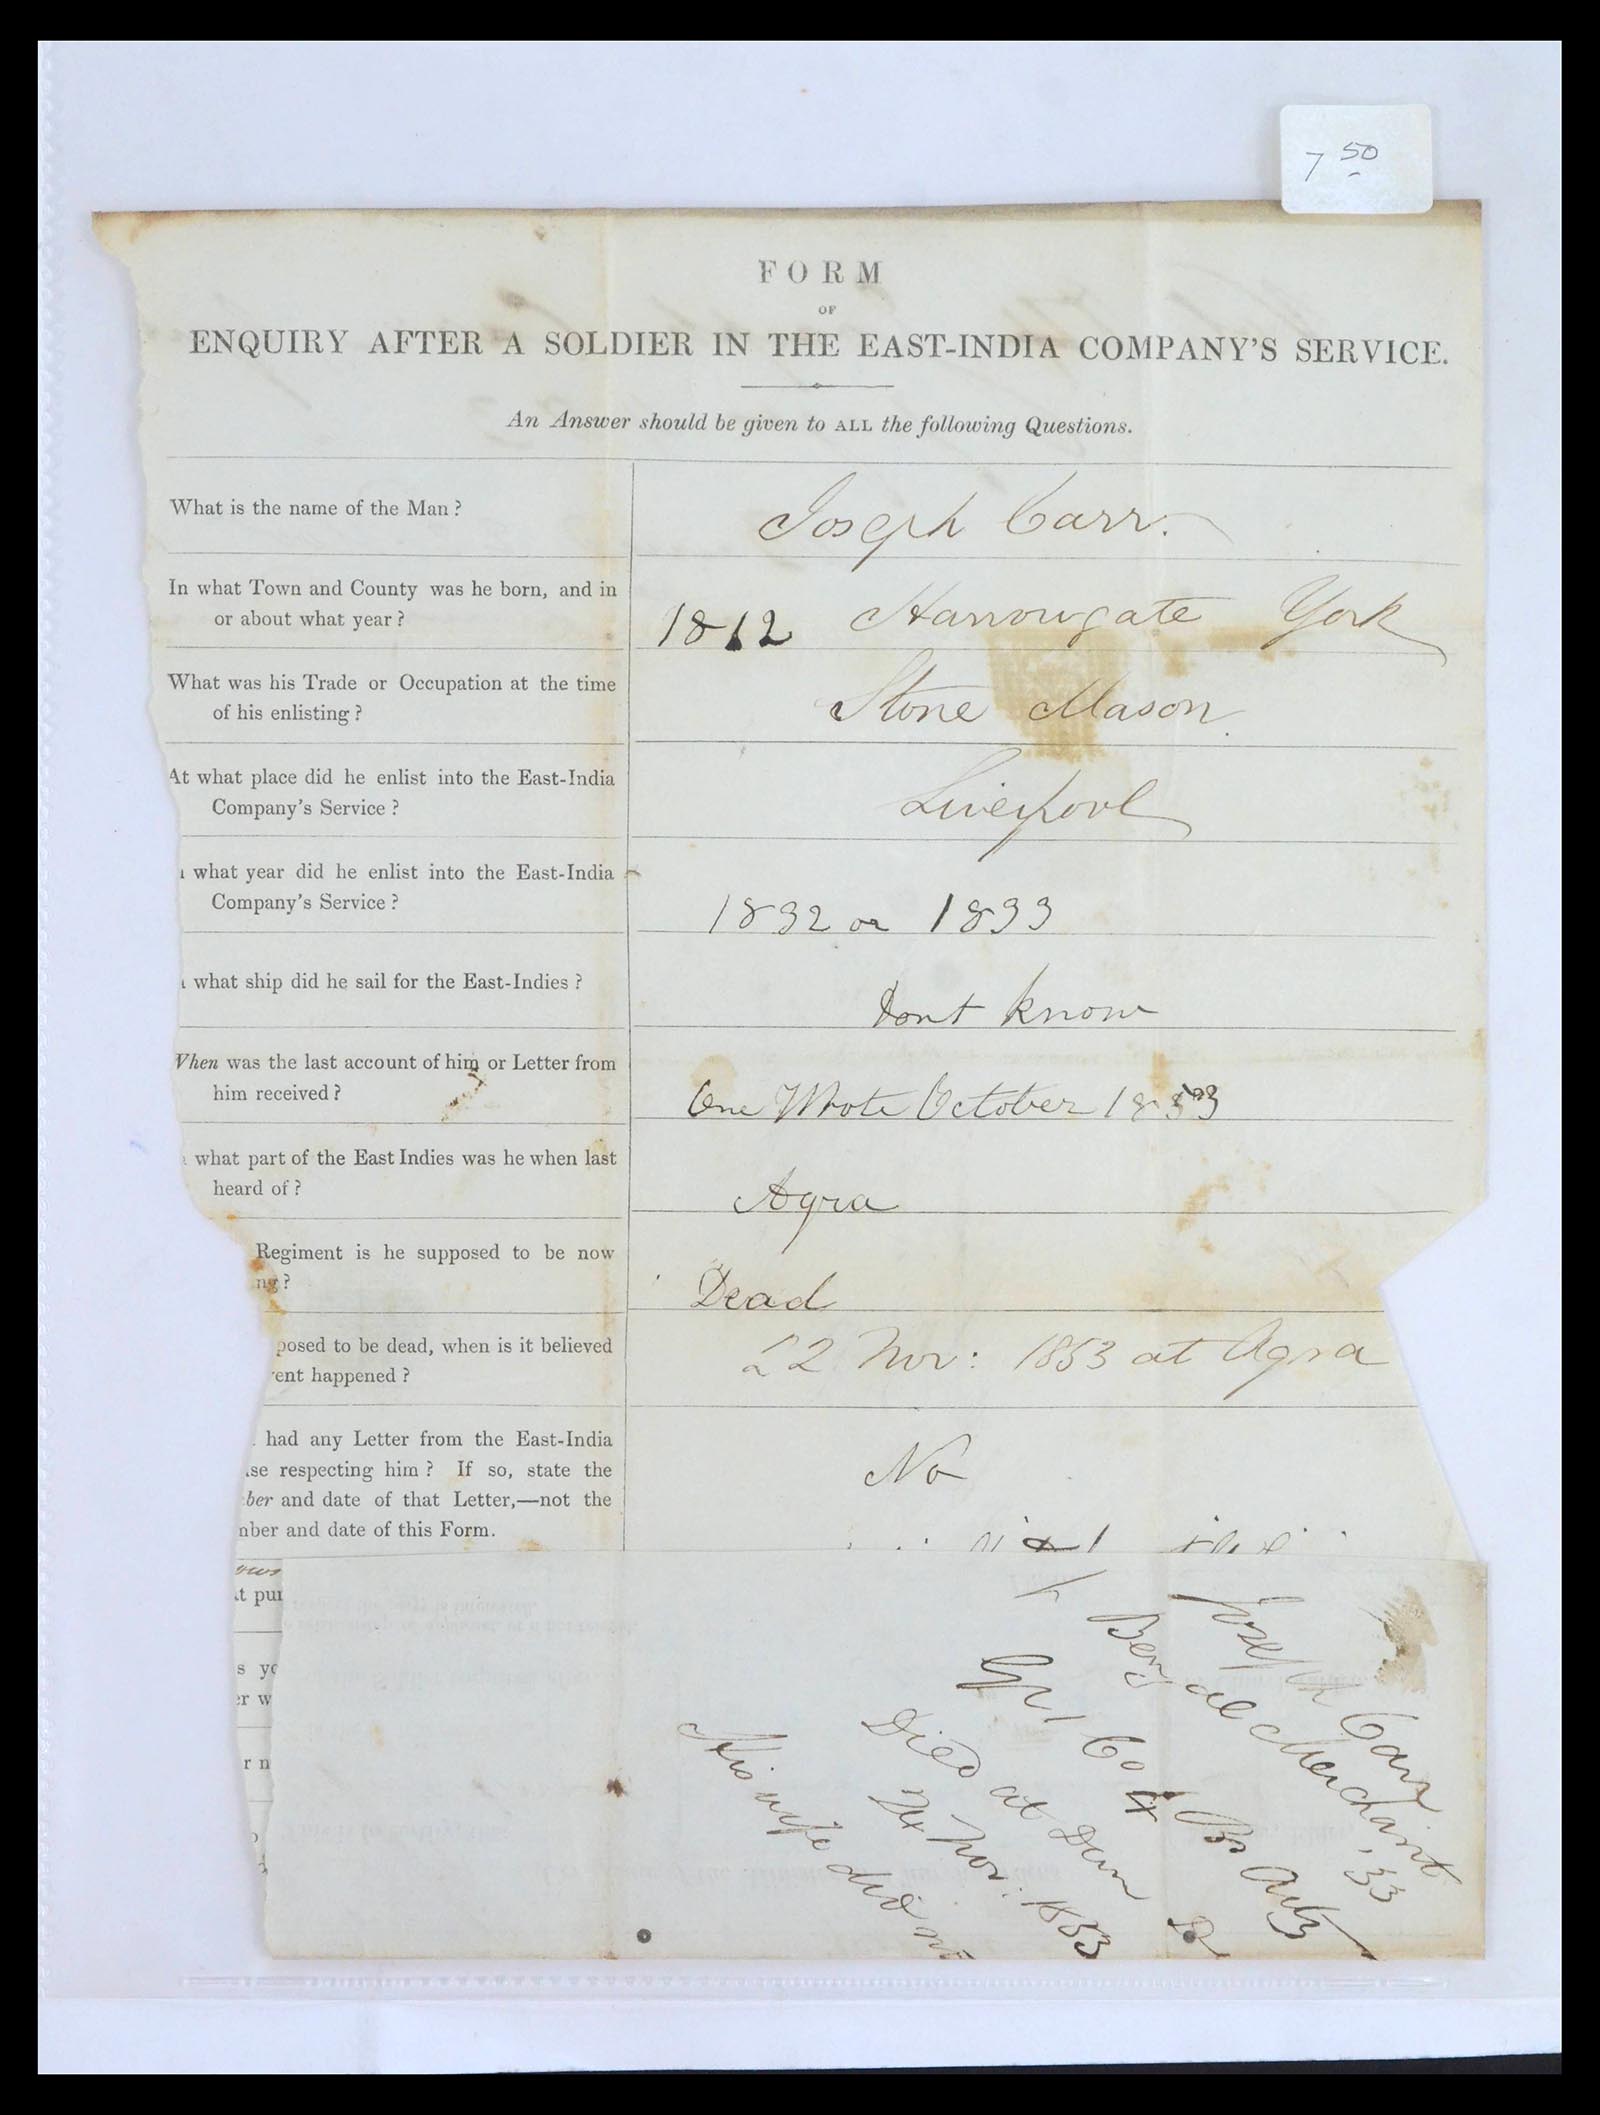 7 50
FORM
OF
ENQUIRY AFTER A SOLDIER IN THE EAST-INDIA COMPANY'S SERVICE.
An Answer should be given to ALL the following Questions.
What is the name of the Man?
Joseph Carr.
In what Town and County was he born, and in
or about what year?
1812 Harrowgate York
What was his Trade or Occupation at the time
of his enlisting?
Stone Mason
At what place did he enlist into the East-India
Company's Service?
Liverpool
what year did he enlist into the East-India
Company's Service?
1832 or 1833
what ship did he sail for the East-Indies?
Dont know
When was the last account of him or Letter from
him received?
One Wrote October 1853
what part of the East Indies was he when last
heard of?
Agra
Regiment is he supposed to be now
ng?
Dead
posed to be dead, when is it believed
ent happened?
22 Nov: 1853 at Agra
had any Letter from the East-India
se respecting him? If so, state the
ber and date of that Letter,—not the
nber and date of this Form.
No
t pur
s yo
er w
r n
Joseph Carr
Bengal Merchant 33
Co Arty
Died at Dum
Nov: 1853
His wife died